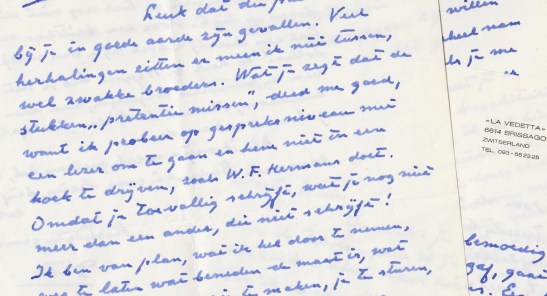 Leuk dat die
bij je in goede aarde zijn gevallen. Veel
herhalingen zitten er meen ik niet tussen,
wel zwakke broeders. Wat je zegt dat de
stukken „pretentie missen”, deed me goed,
want ik probeer op gespreksniveau met
een lezer om te gaan en hem niet in een
hoek te drijven, zoals W.F. Hermans doet.
Omdat je toevallig schrijft, weet je nog niet
meer dan een ander, die niet schrijft!
Ik ben van plan, wat ik hel door te nemen,
weg te laten wat beneden de maat is, wat
te maken, je te sturen,
willen
heel nam
ls je me
«LA VEDETTA»
6614 BRISSAGO
ZWITSERLAND
TEL. 093-652325
bemoedig
gaf, gaat